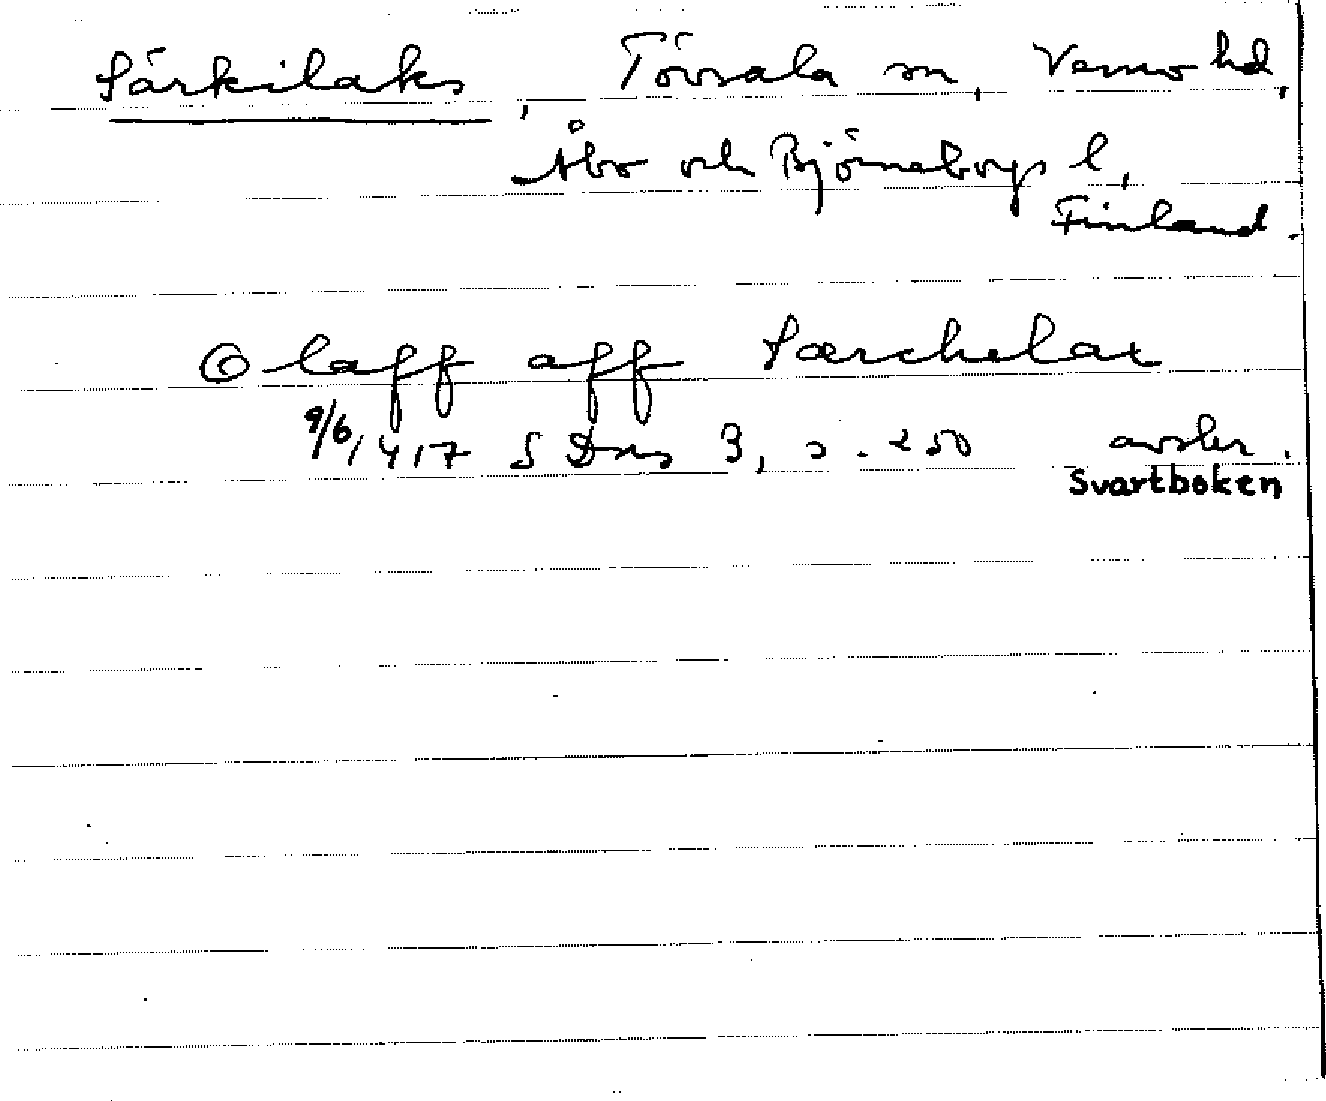 Särkilaks, Tövsala sn, Vemo hd,
Åbo och Björneborgs l,
Finland.
Olaff aff Særchelax
9/6 1417 SDns 3, s. 250 avskr.
Svartboken